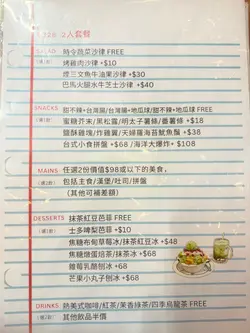 $328 2人套餐
SALAD 時令蔬菜沙律 FREE
(選1款) 烤雞肉沙律 +$10
煙三文魚牛油果沙律 +$30
巴馬火腿水牛芝士沙律 +$40
SNACKS 甜不辣+台灣腸/台灣腸+地瓜球/甜不辣+地瓜球 FREE
(選1款) 蜜糖芥末/黑松露/明太子薯條/番薯條 +$18
鹽酥雞塊/炸雞翼/天婦羅海苔魷魚鬚 +$38
台式小食拼盤 +$68 / 海洋大爆炸+ $108
MAINS 任選2份價值$98或以下的美食,
(選2款) 包括主食/漢堡/吐司/拼盤
(其他可補差額)
DESSERTS 抹茶紅豆芭菲 FREE
(選1款) 士多啤梨芭菲 +$10
焦糖布甸草莓冰/抹茶紅豆冰 +$48
焦糖燉蛋焙茶/抹茶冰 +$68
葡萄乳酪刨冰 +$68
芒果小丸子刨冰 +$68
DRINKS 熱美式咖啡/紅茶/茉香綠茶/四季烏龍茶 FREE
(選2款) 其他飲品半價